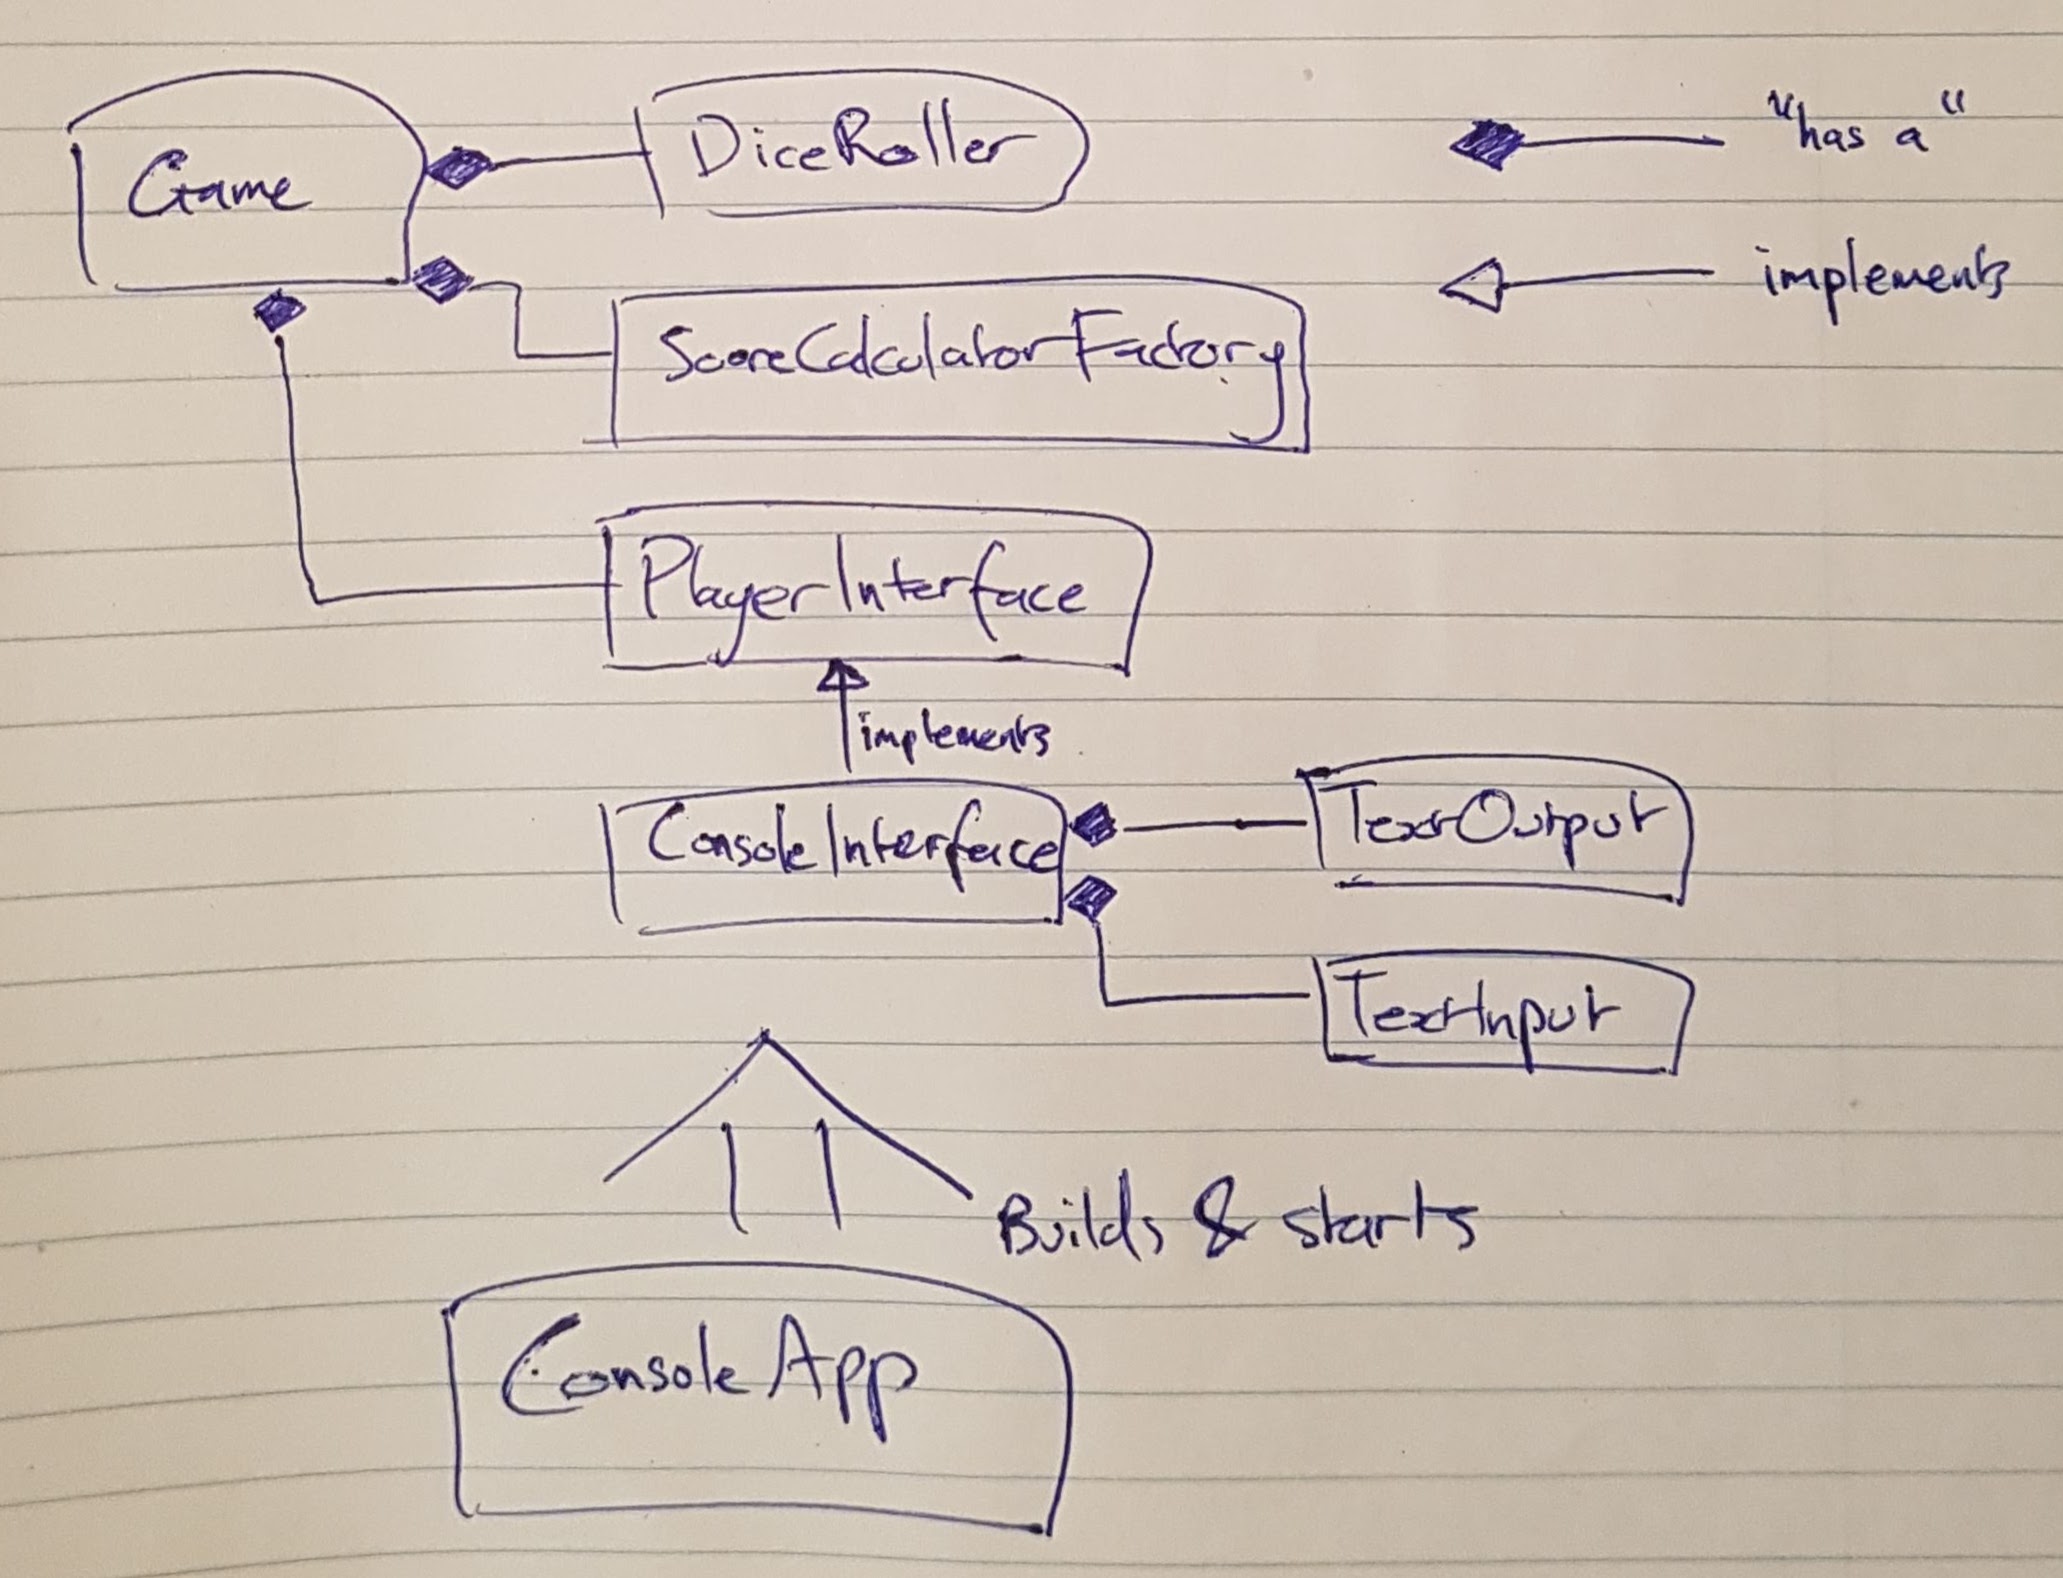 Game
DiceRoller
"has a"
implements
ScoreCalculatorFactory
PlayerInterface
implements
ConsoleInterface
TextOutput
TextInput
Builds & starts
ConsoleApp